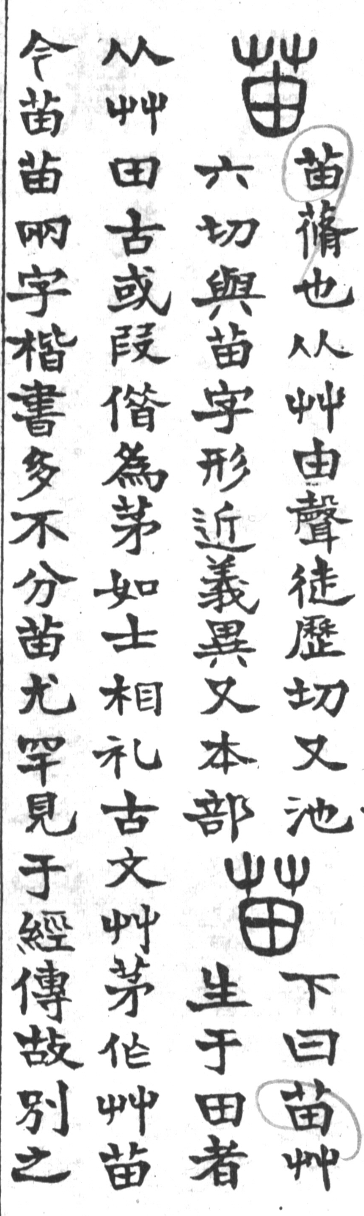 苖
苖蓨也从艸由聲徒歷切又池
六切與苗字形近義異又本部
苗
下曰苗艸
生于田者
从艸田古或叚借為茅如士相礼古文艸茅作艸苗
今苖苗兩字楷書多不分苖尤罕見于經傳故别之